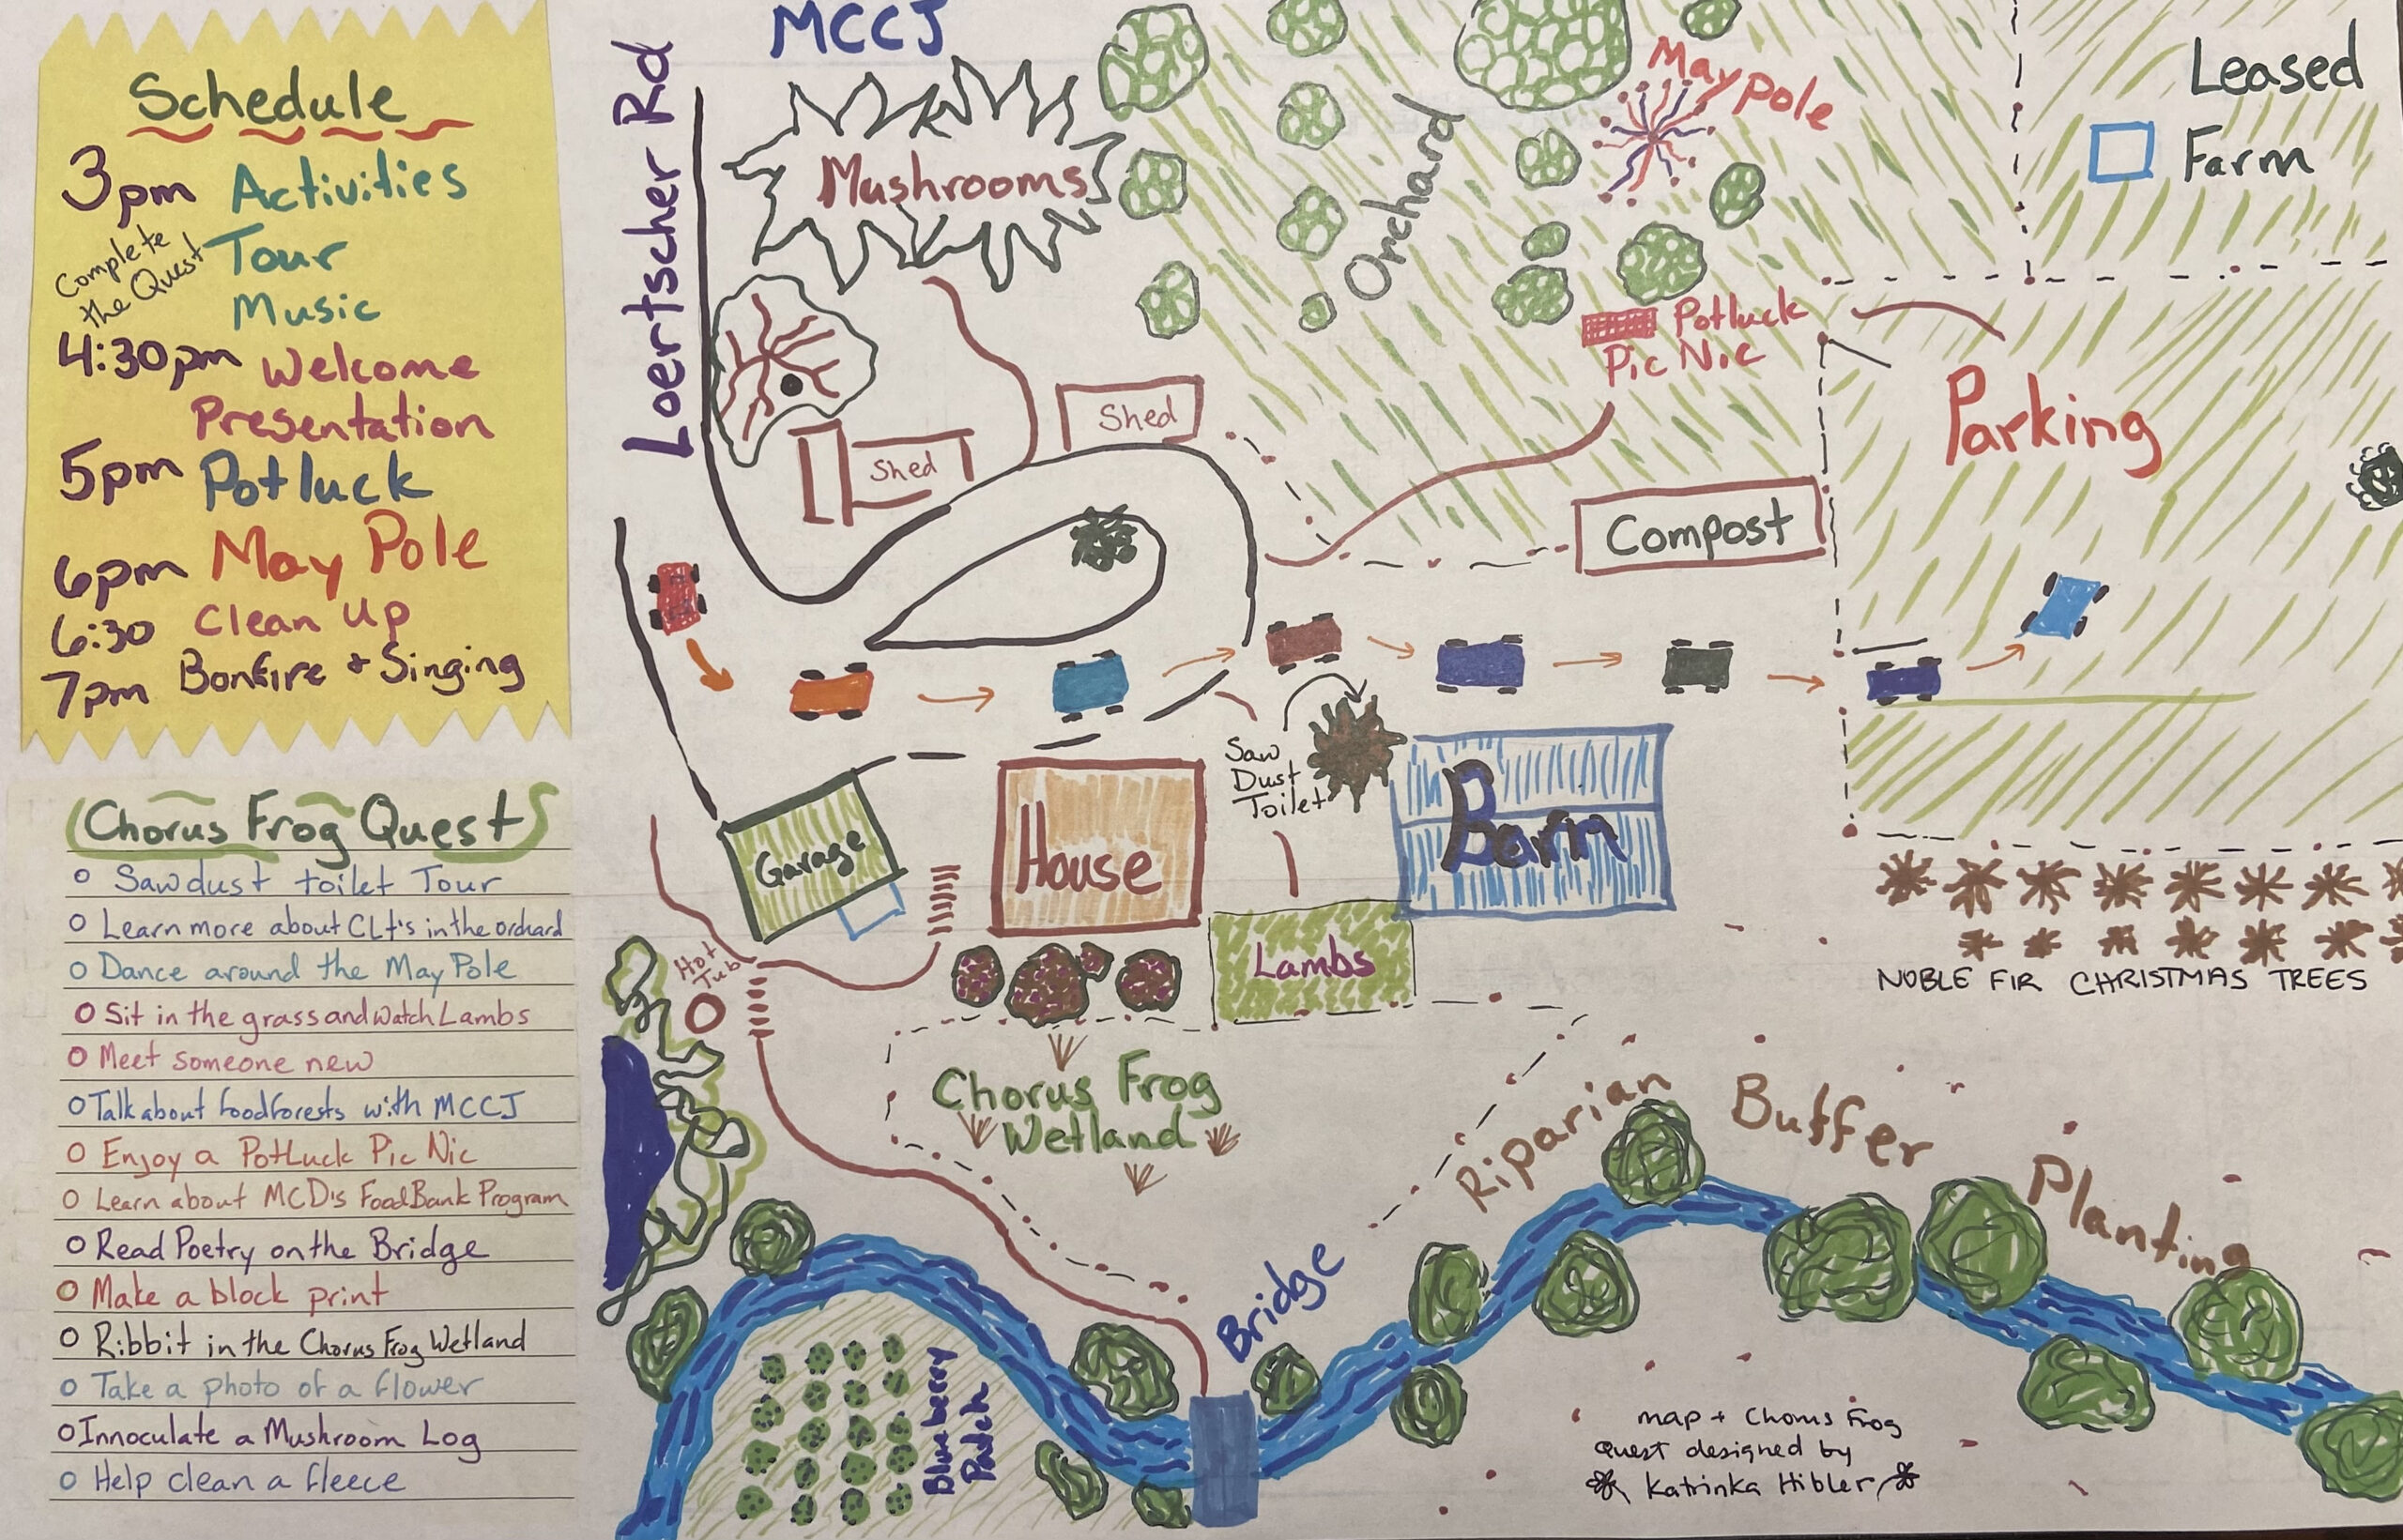 Schedule
3pm Activities
Complete
the Quest
Tour
Music
4:30pm Welcome
Presentation
5pm Potluck
6pm May Pole
6:30 Clean Up
7pm Bonfire + Singing
Chorus Frog Quest
Sawdust toilet Tour
Learn more about CLt's in the orchard
Dance around the May Pole
Sit in the grass and watch Lambs
Meet someone new
Talk about foodforests with MCCJ
Enjoy a PotLuck Pic Nic
Learn about MCD's FoodBank Program
Read Poetry on the Bridge
Make a block print
Ribbit in the Chorus Frog Wetland
Take a photo of a flower
Innoculate a Mushroom Log
Help clean a fleece
MCCJ
Loertscher Rd
Mushrooms
Orchard
May Pole
Leased
Farm
Potluck
Pic Nic
Parking
Shed
Shed
Compost
Saw
Dust
Toilet
Garage
House
Barn
Lambs
Hot
Tub
NOBLE FIR CHRISTMAS TREES
Chorus Frog
Wetland
Riparian Buffer Planting
Bridge
Blueberry
Patch
map + Chorus Frog
Quest designed by
Katrinka Hibler